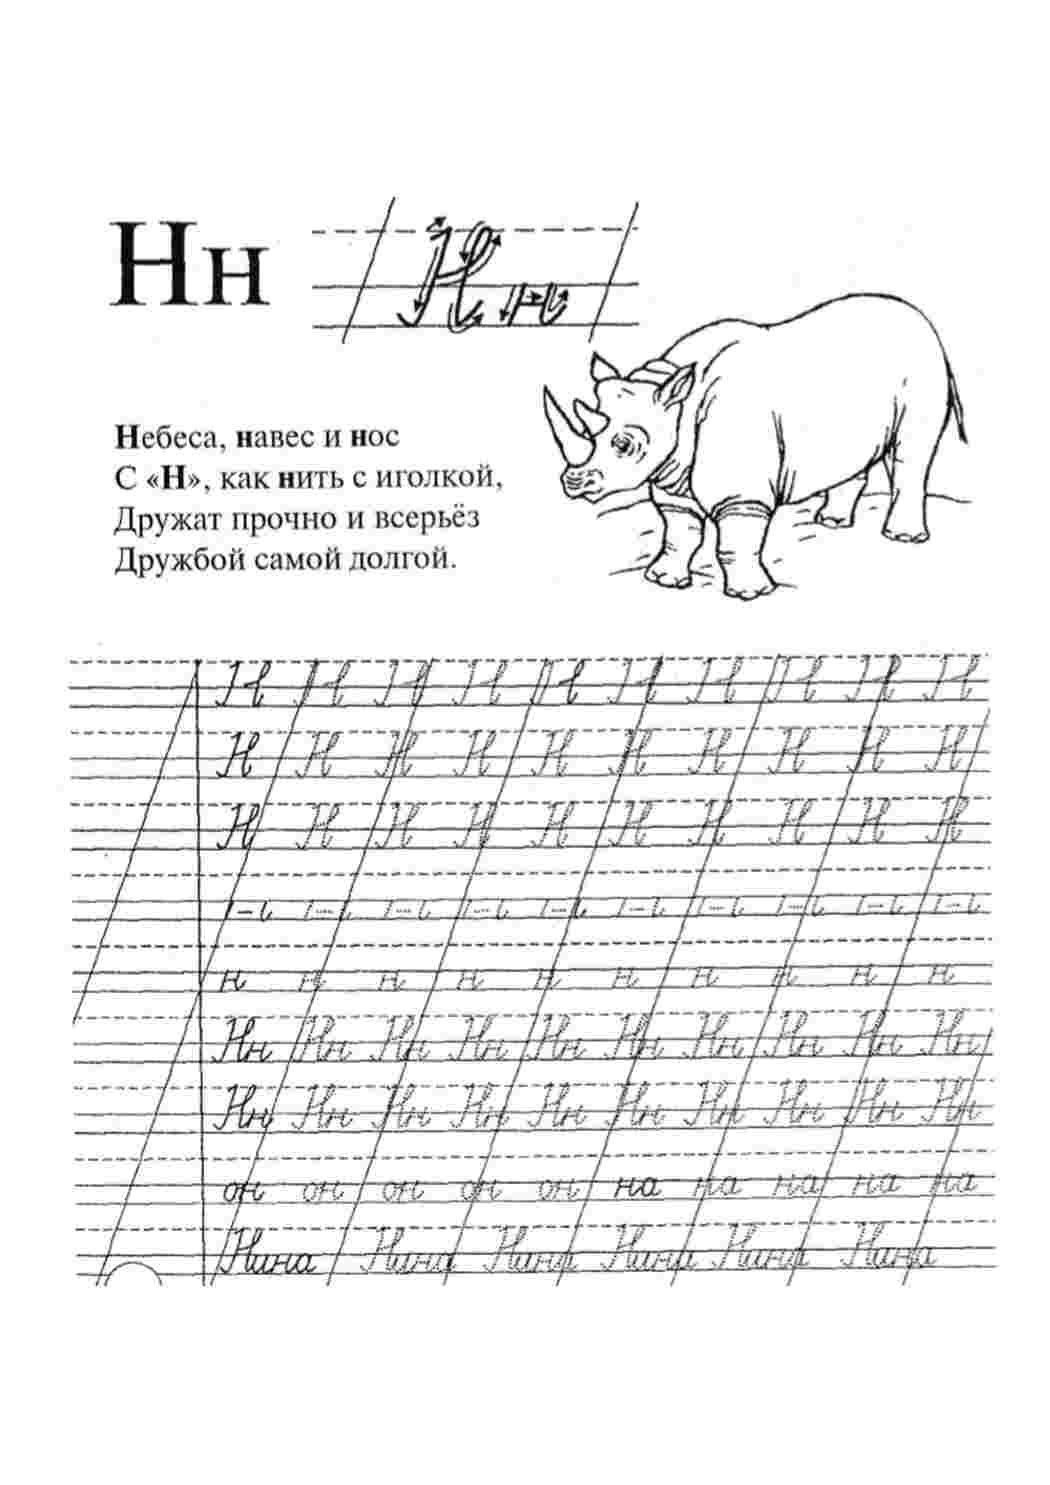 Нн Нн
Небеса, навес и нос
С «Н», как нить с иголкой,
Дружат прочно и всерьёз
Дружбой самой долгой.
Н Н Н Н Н Н Н Н Н Н
Н Н Н Н Н Н Н Н Н Н
Н Н Н Н Н Н Н Н Н Н
н н н н н н н н н н
Нн Нн Нн Нн Нн Нн Нн Нн Нн Нн
Нн Нн Нн Нн Нн Нн Нн Нн Нн Нн
он он он он он на на на на на
Нина Нина Нина Нина Нина Нина